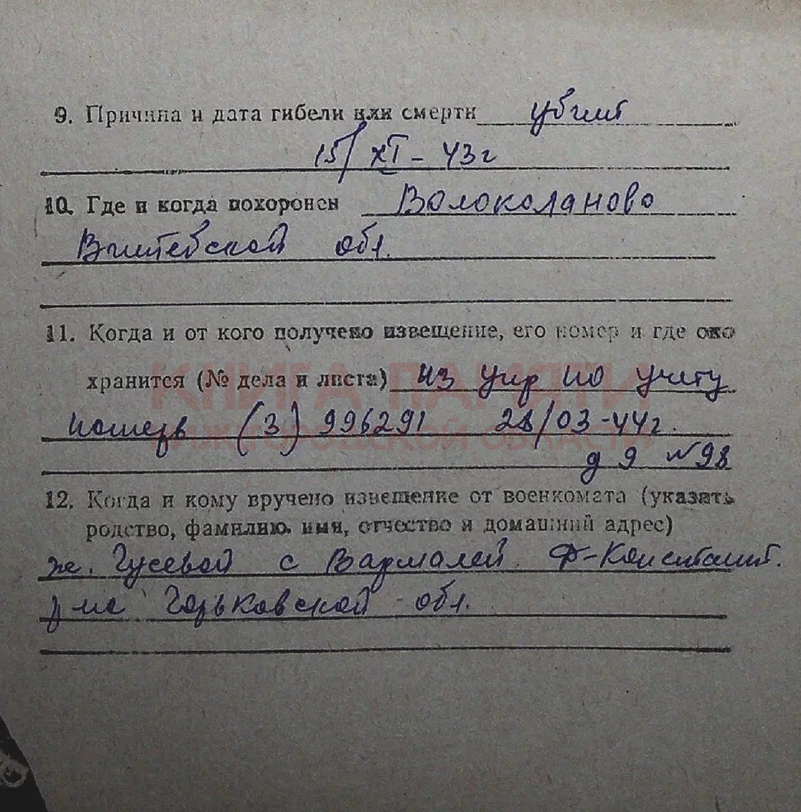 9. Причина и дата гибели или смерти убит
15/XI - 43г
10. Где и когда похоронен Волоколаново
Витебской обл.
11. Когда и от кого получено извещение, его номер и где оно
хранится (№ дела и листа) из упр по учету
потерь (3) 996291 28/03-44г.
д 9 №98
12. Когда и кому вручено извещение от военкомата (указать
родство, фамилию, имя, отчество и домашний адрес)
же. Гусевой с Вармалей Д-Констант.
р-на Горьковской обл.
КНИГА ПАМЯТИ
НИЖЕГОРОДСКОЙ ОБЛАСТИ